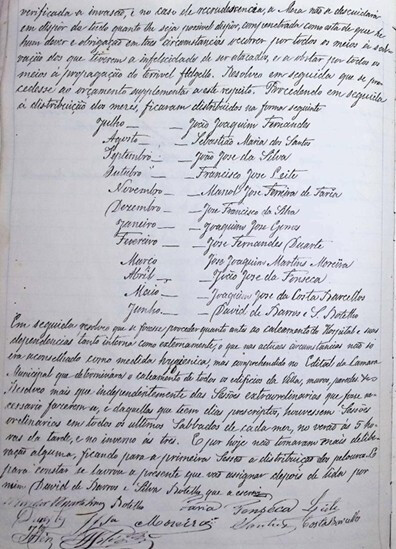 verificada a invasão, e no caso de accendescencia, a Mesa não a descuidara
em dispôr de tudo quanto lhe seja possivel dispôr, compenetrada como está de que he
hum dever e obrigação em taes circumstancias recorrer por todos os meios á sal-
vação dos que tiverem a infelicidade de ser atacados, e a obstar por todos os
meios á propagação do terrivel flagello. Resolveo em seguida que se pro-
cedesse ao orçamento supplementar a este respeito. Procedendo em seguida
á distribuição dos mezes, ficaram distribuidos na forma seguinte
Julho — João Joaquim Fernandes
Agosto — Sebastião Maria dos Santos
Septembro — João José da Silva
Outubro — Francisco José Leite
Novembro — Manoel José Ferreira de Faria
Dezembro — José Francisco da Silva
Janeiro — Joaquim José Gomes
Fevereiro — José Fernandes Duarte
Março José Joaquim Martins Moreira
Abril — João José da Fonseca
Maio — Joaquim José da Costa Barcellos
Junho — David de Barros e S. Botelho
Em seguida resolveo que se fizesse proceder quanto antes ao caleamento do Hospital e suas
dependencias tanto interna como externamente, o que nas actuaes circumstancias não só
era aconselhado como medida hygienica, mas comprehendido no Edital da Camara
Municipal que determinára o caleamento de todos os edificios da Villa, muros, paredes &
Resolveo mais que independentemente das Sessões extraordinarias que fosse ne-
cessario fazerem-se, e daquellas que tem dias prescriptos, houvessem Sessões
ordinarias em todos os ultimos Sabbados de cada mez, no verão ás 5 ho-
ras da tarde, e no inverno ás tres. E por hoje não tomaram mais delibe-
ração alguma, ficando para a primeira Sessão a distribuição dos pelouros. E
para constar se lavrou a presente que vão assignar depois de lida por
mim David de Barros e Silva Botelho, que a escrevi
Botelho Faria Fonseca Leite
Silva Moreira Santos Costa Barcellos